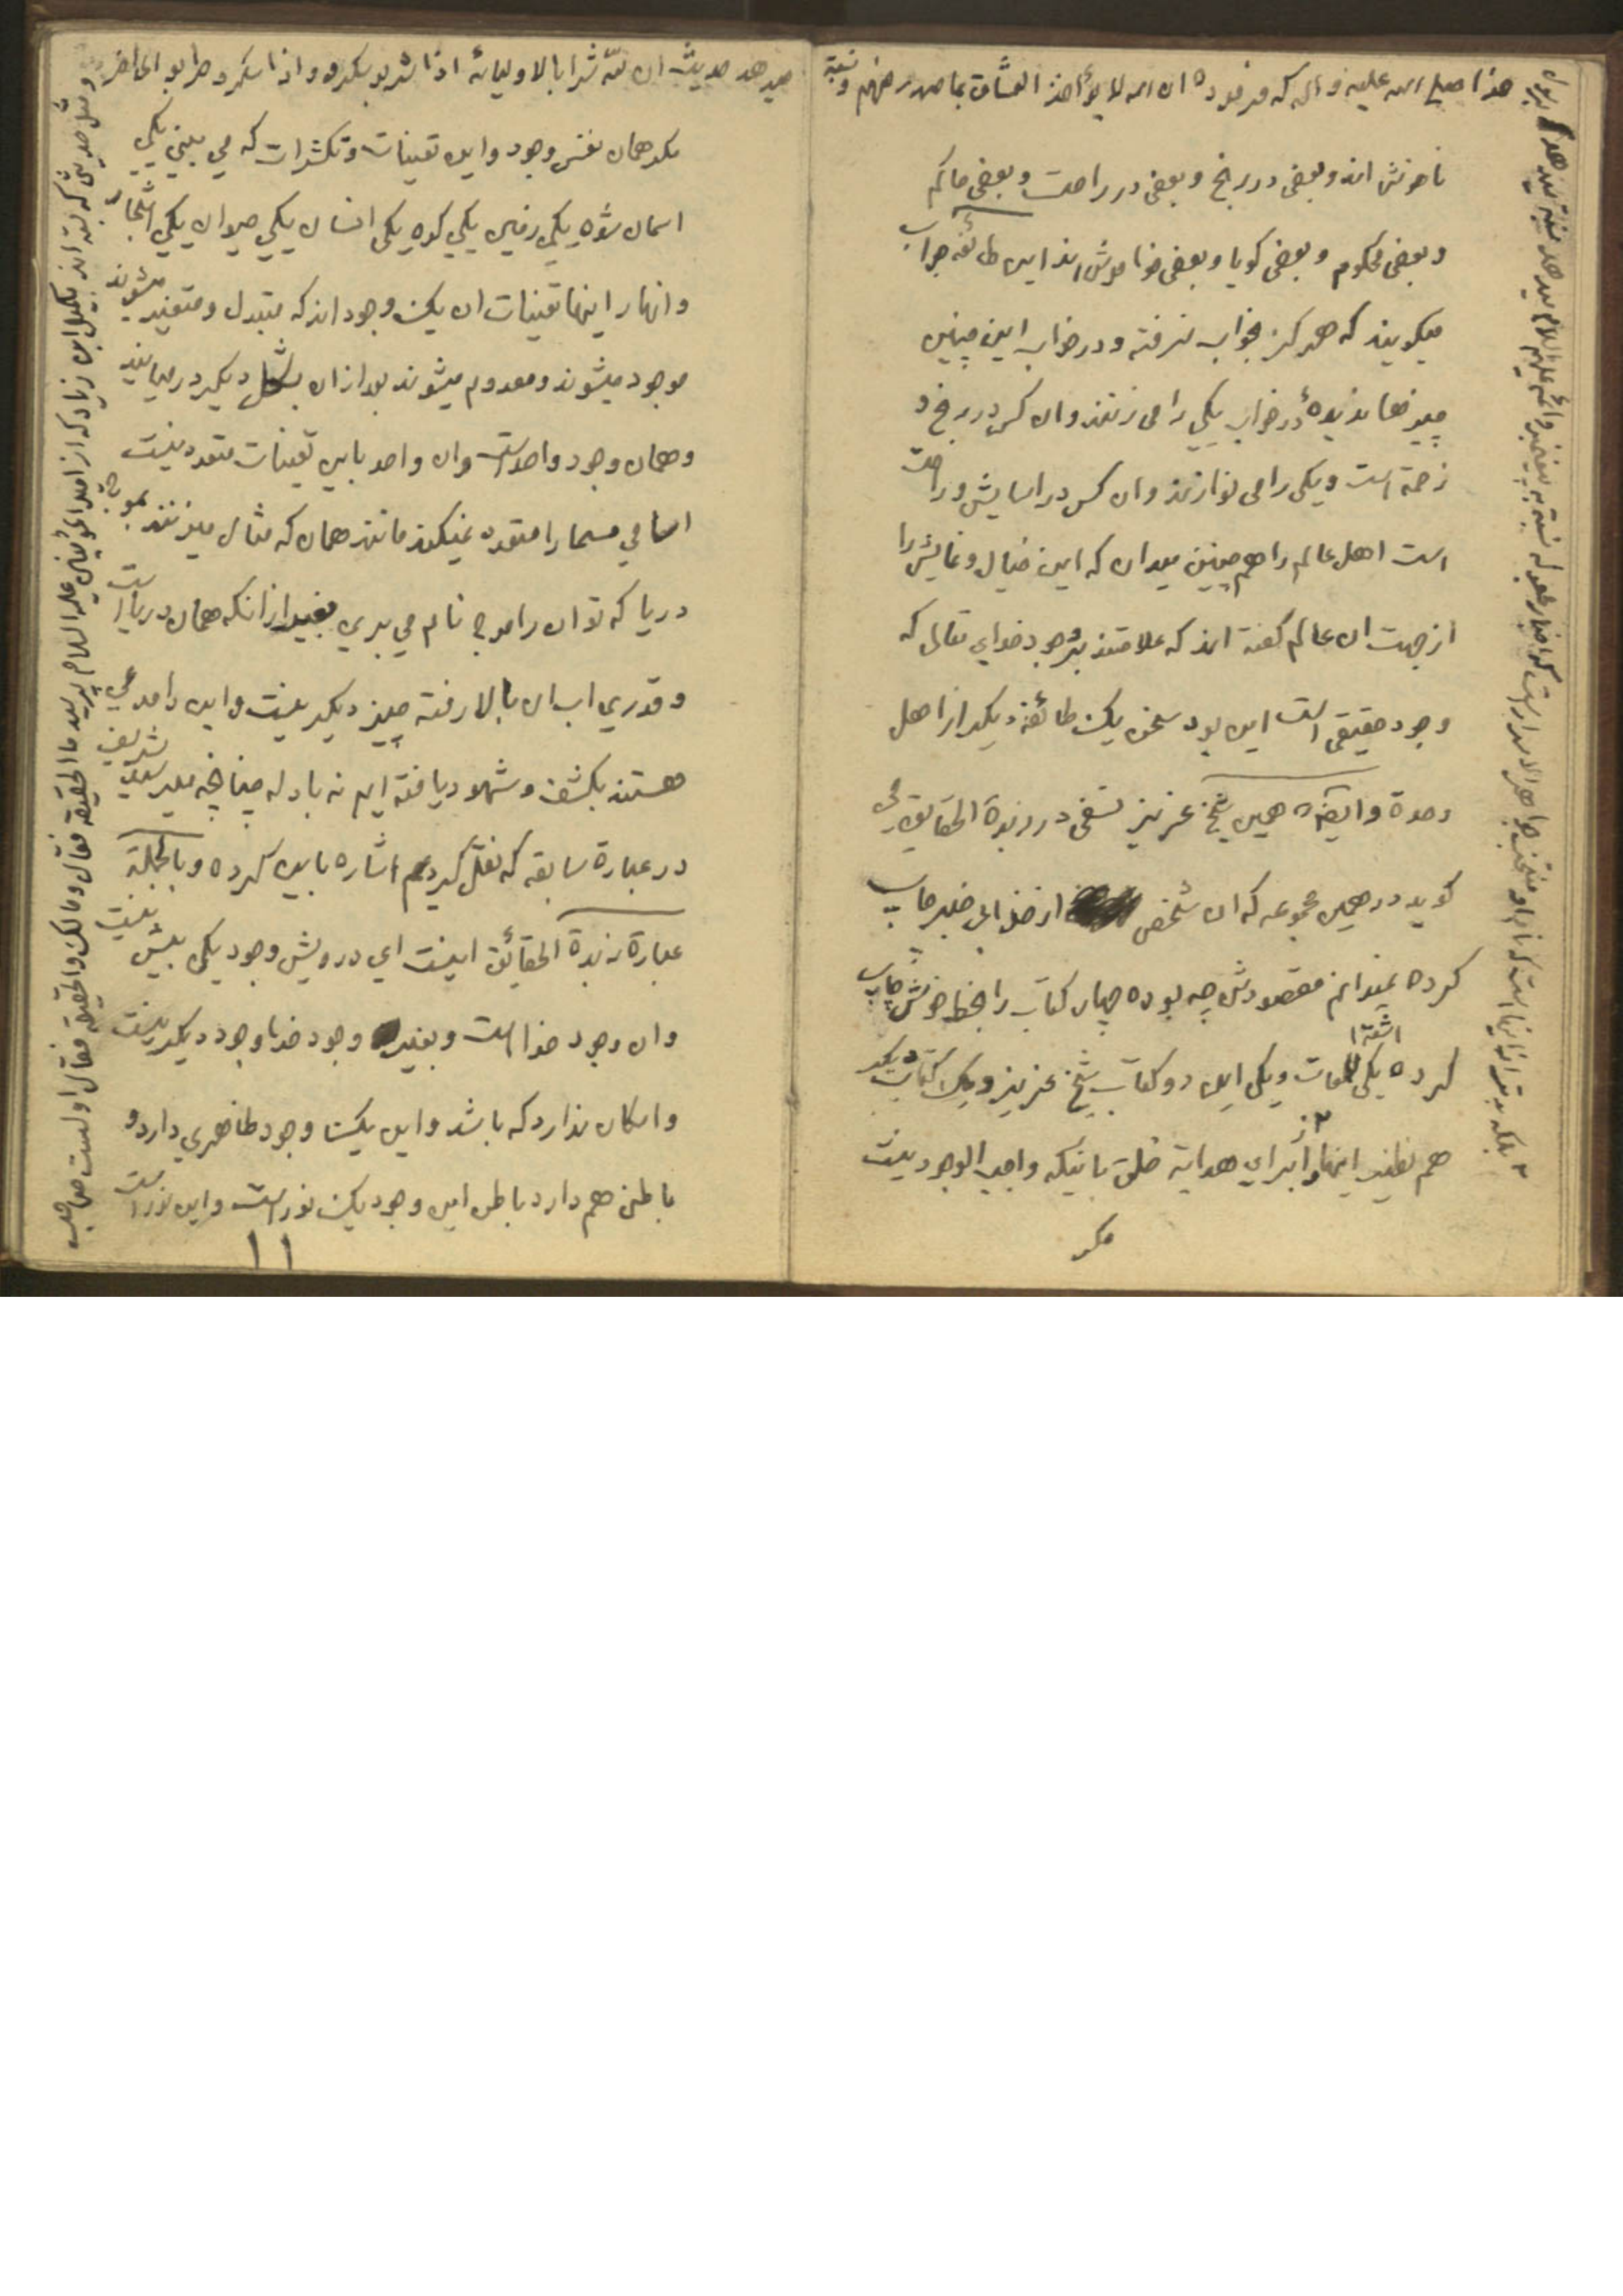 هذا صلی الله علیه و اله که فرموده ان الله لا یؤاخذ العشاق بما صدر منهم و نسبة
ناخوش اند و بعضی در رنج و بعضی در راحت و بعضی حاکم
و بعضی محکوم و بعضی کویا و بعضی خاموش اند این طائفه جواب
میکویند که هرکز بخواب نرفته و در خواب این چنین
چیزها ندیدهٔ در خواب یکی را می زنند و ان کس در رنج و
زحمة است و یکی را می نوازند و ان کس در اسایش و راحت
است اهل عالم را هم چنین میدان که این خیال و نمایش را
از جهت ان عالم کفته اند که علامتند بر وجود خدای تعالی که
وجود حقیقی است این بود سخن یک طائفهٔ دیکر از اهل
وحدة و ایضاً همین شیخ عزیز نسفی در زبدة الحقایق می
کوید در همین مجموعه که ان شخص از خدا بی خبر چاپ
کرده نمیدانم مقصودش چه بوده چهار کتاب را بخط خوش چاپ
کرده یکی اشعة اللمعات و یکی این دو کتاب شیخ عزیز و یک کتاب دیکر
هم نظیر اینها را برای هدایة خلق باینکه واجب الوجود نیست
مکر
میدهد حدیث ان لله شرابا لاولیائه اذا شربو سکرو و اذا سکرو طربو الی اخر
مکر همان نفس وجود و این تعینات و تکثرات که می بینی یکی
اسمان شده یکی زمین یکی کوه یکی انسان یکی حیوان یکی اشجار
و انهار اینها تعینات ان یک وجود اند که متبدل و متغیر میشوند
موجود میشوند و معدوم میشوند بعد از ان بشکل دیکر در میایند
و همان وجود واحد است و ان واحد باین تعینات متعدد نیست
اسامی مسما را متعدد نمیکند مانند همان که مثال میزنند بموج
دریا که تو ان را موج نام می بری بغیر از انکه همان دریا است
و قدری اب ان بالا رفته چیز دیکر نیست و این را مدعی
هستند بکشف و شهود یافته ایم نه بادله چنانچه میر سید شریف
در عبارة سابقه که نقل کردیم اشاره باین کرده و بالجملة
عبارة زبدة الحقائق اینست ای درویش وجود یکی بیش نیست
و ان وجود خدا است و بغیر وجود خدا وجود دیکر نیست
و امکان ندارد که باشد و این یک وجود ظاهری دارد و
باطنی هم دارد باطن این وجود یک نور است و این نور است
۱۱